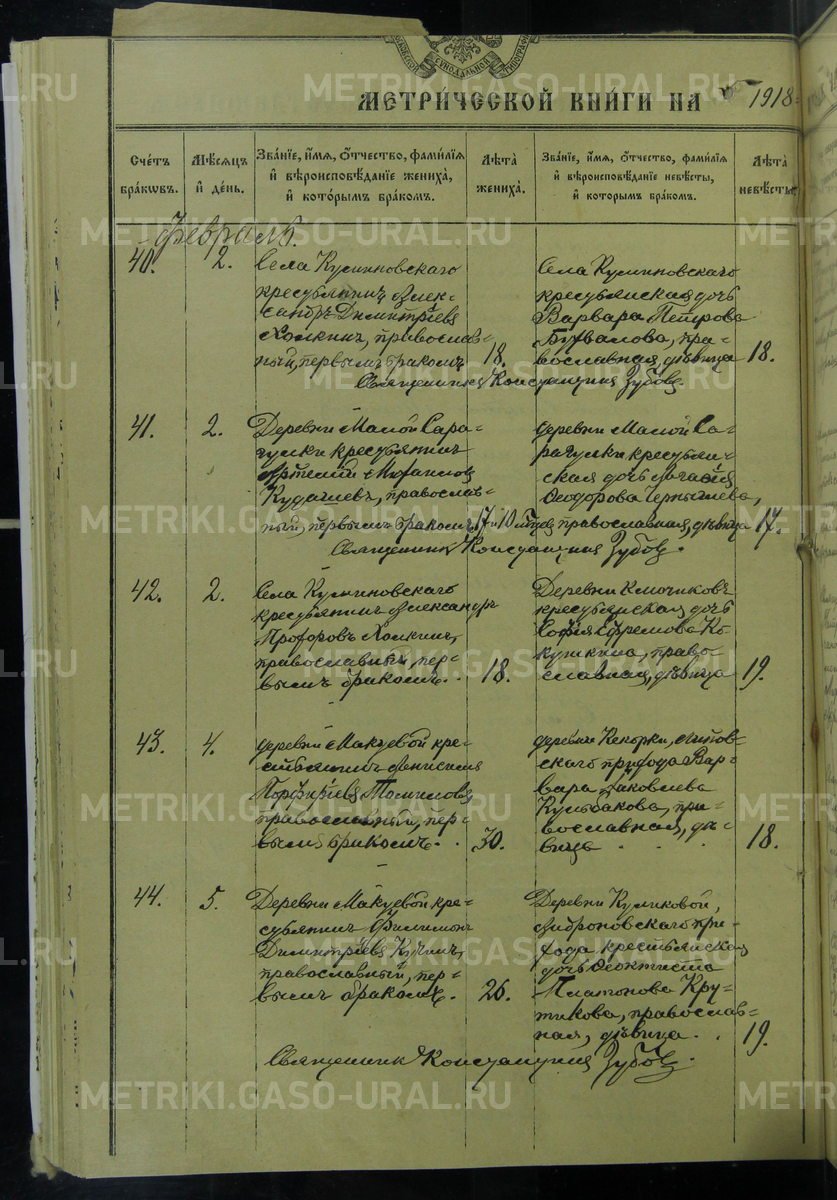 СѴНОДАЛЬНОЙ
МЕТРИ́ЧЕСКОЙ КНИ́ГИ НА 1918
Счётъ бра́кωвъ.
Мѣ́сяцъ и҆ де́нь.
Зва́нїе, и҆́мя, Ѻ҆́тчество, фамилїя и҆ вѣроисповѣ́данїе жениха̀, и҆ кото́рымъ бра́комъ.
Лѣ́та жениха̀.
Зва́нїе, и҆́мя, ѻ҆́тчество, фамилїя и҆ вѣроисповѣ́данїе невѣ́сты, и҆ кото́рымъ бра́комъ.
Лѣ́та невѣ́сты.
Февраль.
40.
2.
Села Кулиновскаго
крестьянинъ Алек-
сандръ Димитріевъ
Холкинъ, православ-
ный, первымъ бракомъ
18.
Села Кулиновскаго
крестьянская дочь
Варвара Петрова
пра-
вославная, дѣвица
18.
Священникъ Константинъ Зубовъ.
41.
2.
Деревни Малой Сара-
гулки крестьянинъ
Артемій Михаиловъ
Кудашевъ, православ-
ный, первымъ бракомъ
17 и 10 мѣсяц.
деревни Малой Са-
рагулки крестьян-
ская дочь
Ѳеодорова Чернышева,
православная, дѣвица
17.
Священникъ Константинъ Зубовъ.
42.
2.
Села Кулиновскаго
крестьянинъ Александръ
Прохоровъ Холкинъ,
православный, пер-
вымъ бракомъ.
18.
Деревни Ключиковъ
крестьянская дочь
Софія Ефремова Ко-
кушкина, право-
славная, дѣвица
19.
43.
4.
деревни Макуевой кре-
стьянинъ
Порфиріевъ Томиловъ,
православный, пер-
вымъ бракомъ.
30.
деревни Кекорки, Липов-
скаго прихода Вар-
вара Іаковлева
Кульбакова, пра-
вославная, дѣ-
вица
18.
44.
5.
Деревни Макуевой кре-
стьянинъ Филимонъ
Димитріевъ Кучинъ,
православный, пер-
вымъ бракомъ.
26.
Деревни Куликовой,
при-
хода крестьянская
дочь Ѳеоктиста
Платонова Кру-
тикова, православ-
ная, дѣвица
19.
Священникъ Константинъ Зубовъ.
METRIKI.GASO-URAL.RU